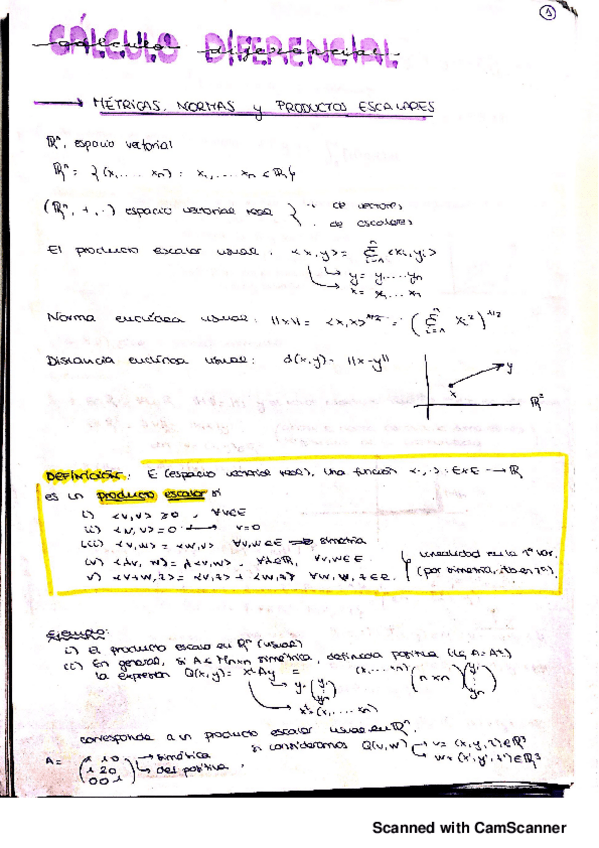 1
CÁLCULO DIFERENCIAL
→ MÉTRICAS, NORMAS y PRODUCTOS ESCALARES
ℝⁿ, espacio vectorial
ℝⁿ = {(x, .... xn) : x, .... xn ∈ ℝ}
(ℝⁿ, +, ·) espacio vectorial real } + de vectores
· de escalares
El producto escalar usual: <x,y> = Σ <xi, yi>
y = y, .... yn
x = x, ... xn
Norma euclídea usual: ||x|| = <x,x>^1/2 = (Σ xi²)^1/2
Distancia euclídea usual: d(x,y) = ||x-y||
y
x
ℝ²
DEFINICIÓN: E (espacio vectorial real). Una función <·,·>: E×E → ℝ
es un producto escalar si
i) <v,v> ≥ 0, ∀v∈E
ii) <v,v> = 0 ↔ v=0
iii) <v,w> = <w,v> ∀v,w∈E ⇒ simetría
iv) <λv, w> = λ<v,w>, ∀λ∈ℝ, ∀v,w∈E
v) <v+w,z> = <v,z> + <w,z> ∀v,w,z∈E
linealidad en la 1ª var.
(por simetría, itb en 2ª).
EJEMPLO:
i) El producto escalar en ℝⁿ (usual)
ii) En general, si A∈Mnxn simétrica, definida positiva (A=Aᵗ)
la expresión Q(x,y) = xᵗAy = (x, ... xn) (n×n) (y, ⋮ yn)
y = (y, ⋮ yn)
xᵗ = (x, ... xn)
corresponde a un producto escalar usual en ℝⁿ.
si consideramos Q(v,w) v = (x,y,z)∈ℝ³
w = (x',y',z')∈ℝ³
A = (1 1 0
1 2 0
0 0 1) → simétrica
→ def positiva
Scanned with CamScanner